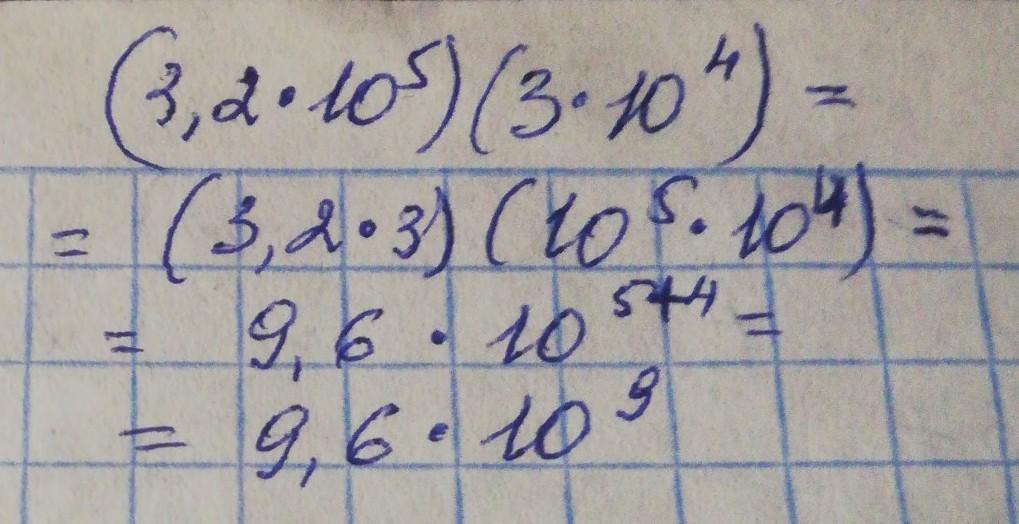 (3,2·10⁵)(3·10⁴)=
=(3,2·3)(10⁵·10⁴)=
= 9,6 · 10⁵⁺⁴ =
= 9,6 · 10⁹